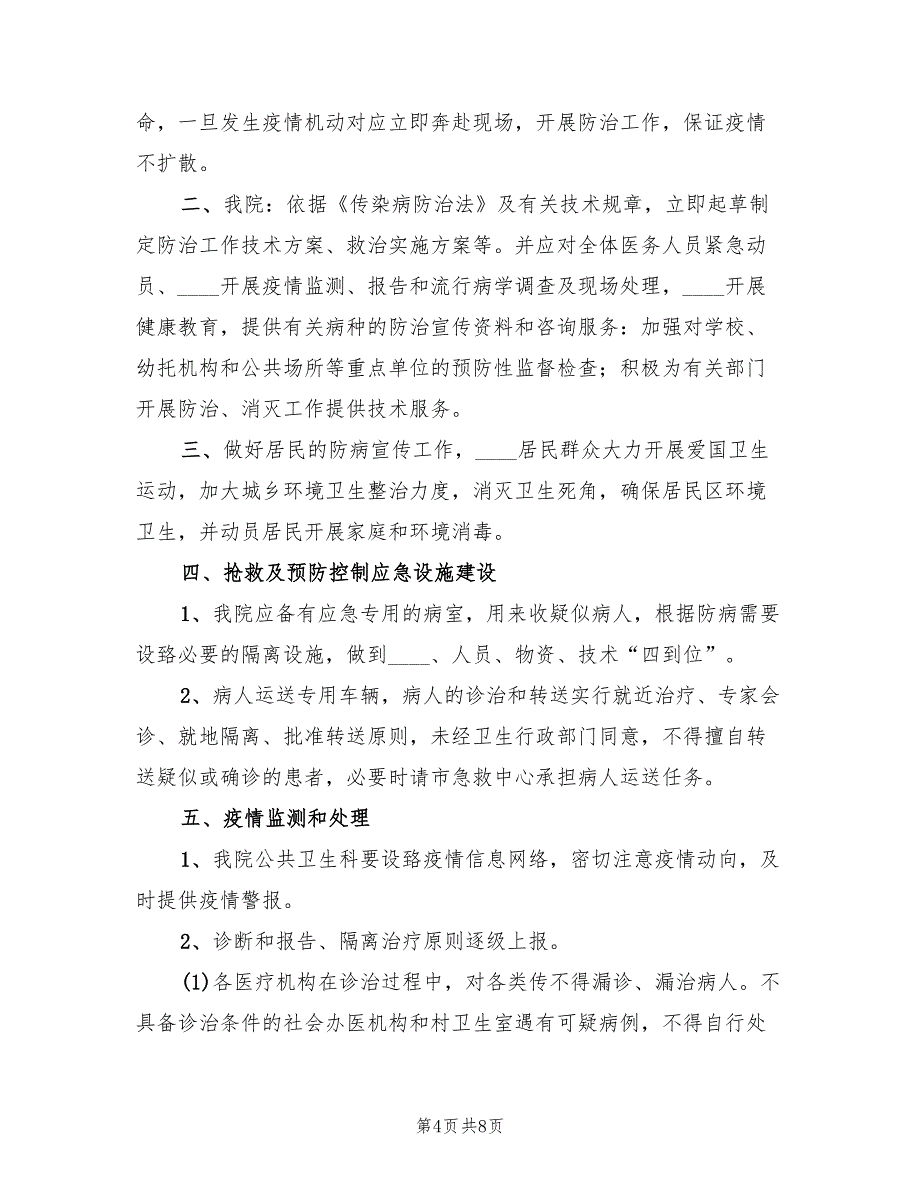 命，一旦发生疫情机动对应立即奔赴现场，开展防治工作，保证疫情
不扩散。
二、我院：依据《传染病防治法》及有关技术规章，立即起草制
定防治工作技术方案、救治实施方案等。并应对全体医务人员紧急动
员、____开展疫情监测、报告和流行病学调查及现场处理，____开展
健康教育，提供有关病种的防治宣传资料和咨询服务：加强对学校、
幼托机构和公共场所等重点单位的预防性监督检查；积极为有关部门
开展防治、消灭工作提供技术服务。
三、做好居民的防病宣传工作，____居民群众大力开展爱国卫生
运动，加大城乡环境卫生整治力度，消灭卫生死角，确保居民区环境
卫生，并动员居民开展家庭和环境消毒。
四、抢救及预防控制应急设施建设
1、我院应备有应急专用的病室，用来收疑似病人，根据防病需要
设臵必要的隔离设施，做到____、人员、物资、技术“四到位”。
2、病人运送专用车辆，病人的诊治和转送实行就近治疗、专家会
诊、就地隔离、批准转送原则，未经卫生行政部门同意，不得擅自转
送疑似或确诊的患者，必要时请市急救中心承担病人运送任务。
五、疫情监测和处理
1、我院公共卫生科要设臵疫情信息网络，密切注意疫情动向，及
时提供疫情警报。
2、诊断和报告、隔离治疗原则逐级上报。
(1)各医疗机构在诊治过程中，对各类传不得漏诊、漏治病人。不
具备诊治条件的社会办医机构和村卫生室遇有可疑病例，不得自行处
第4页 共8页